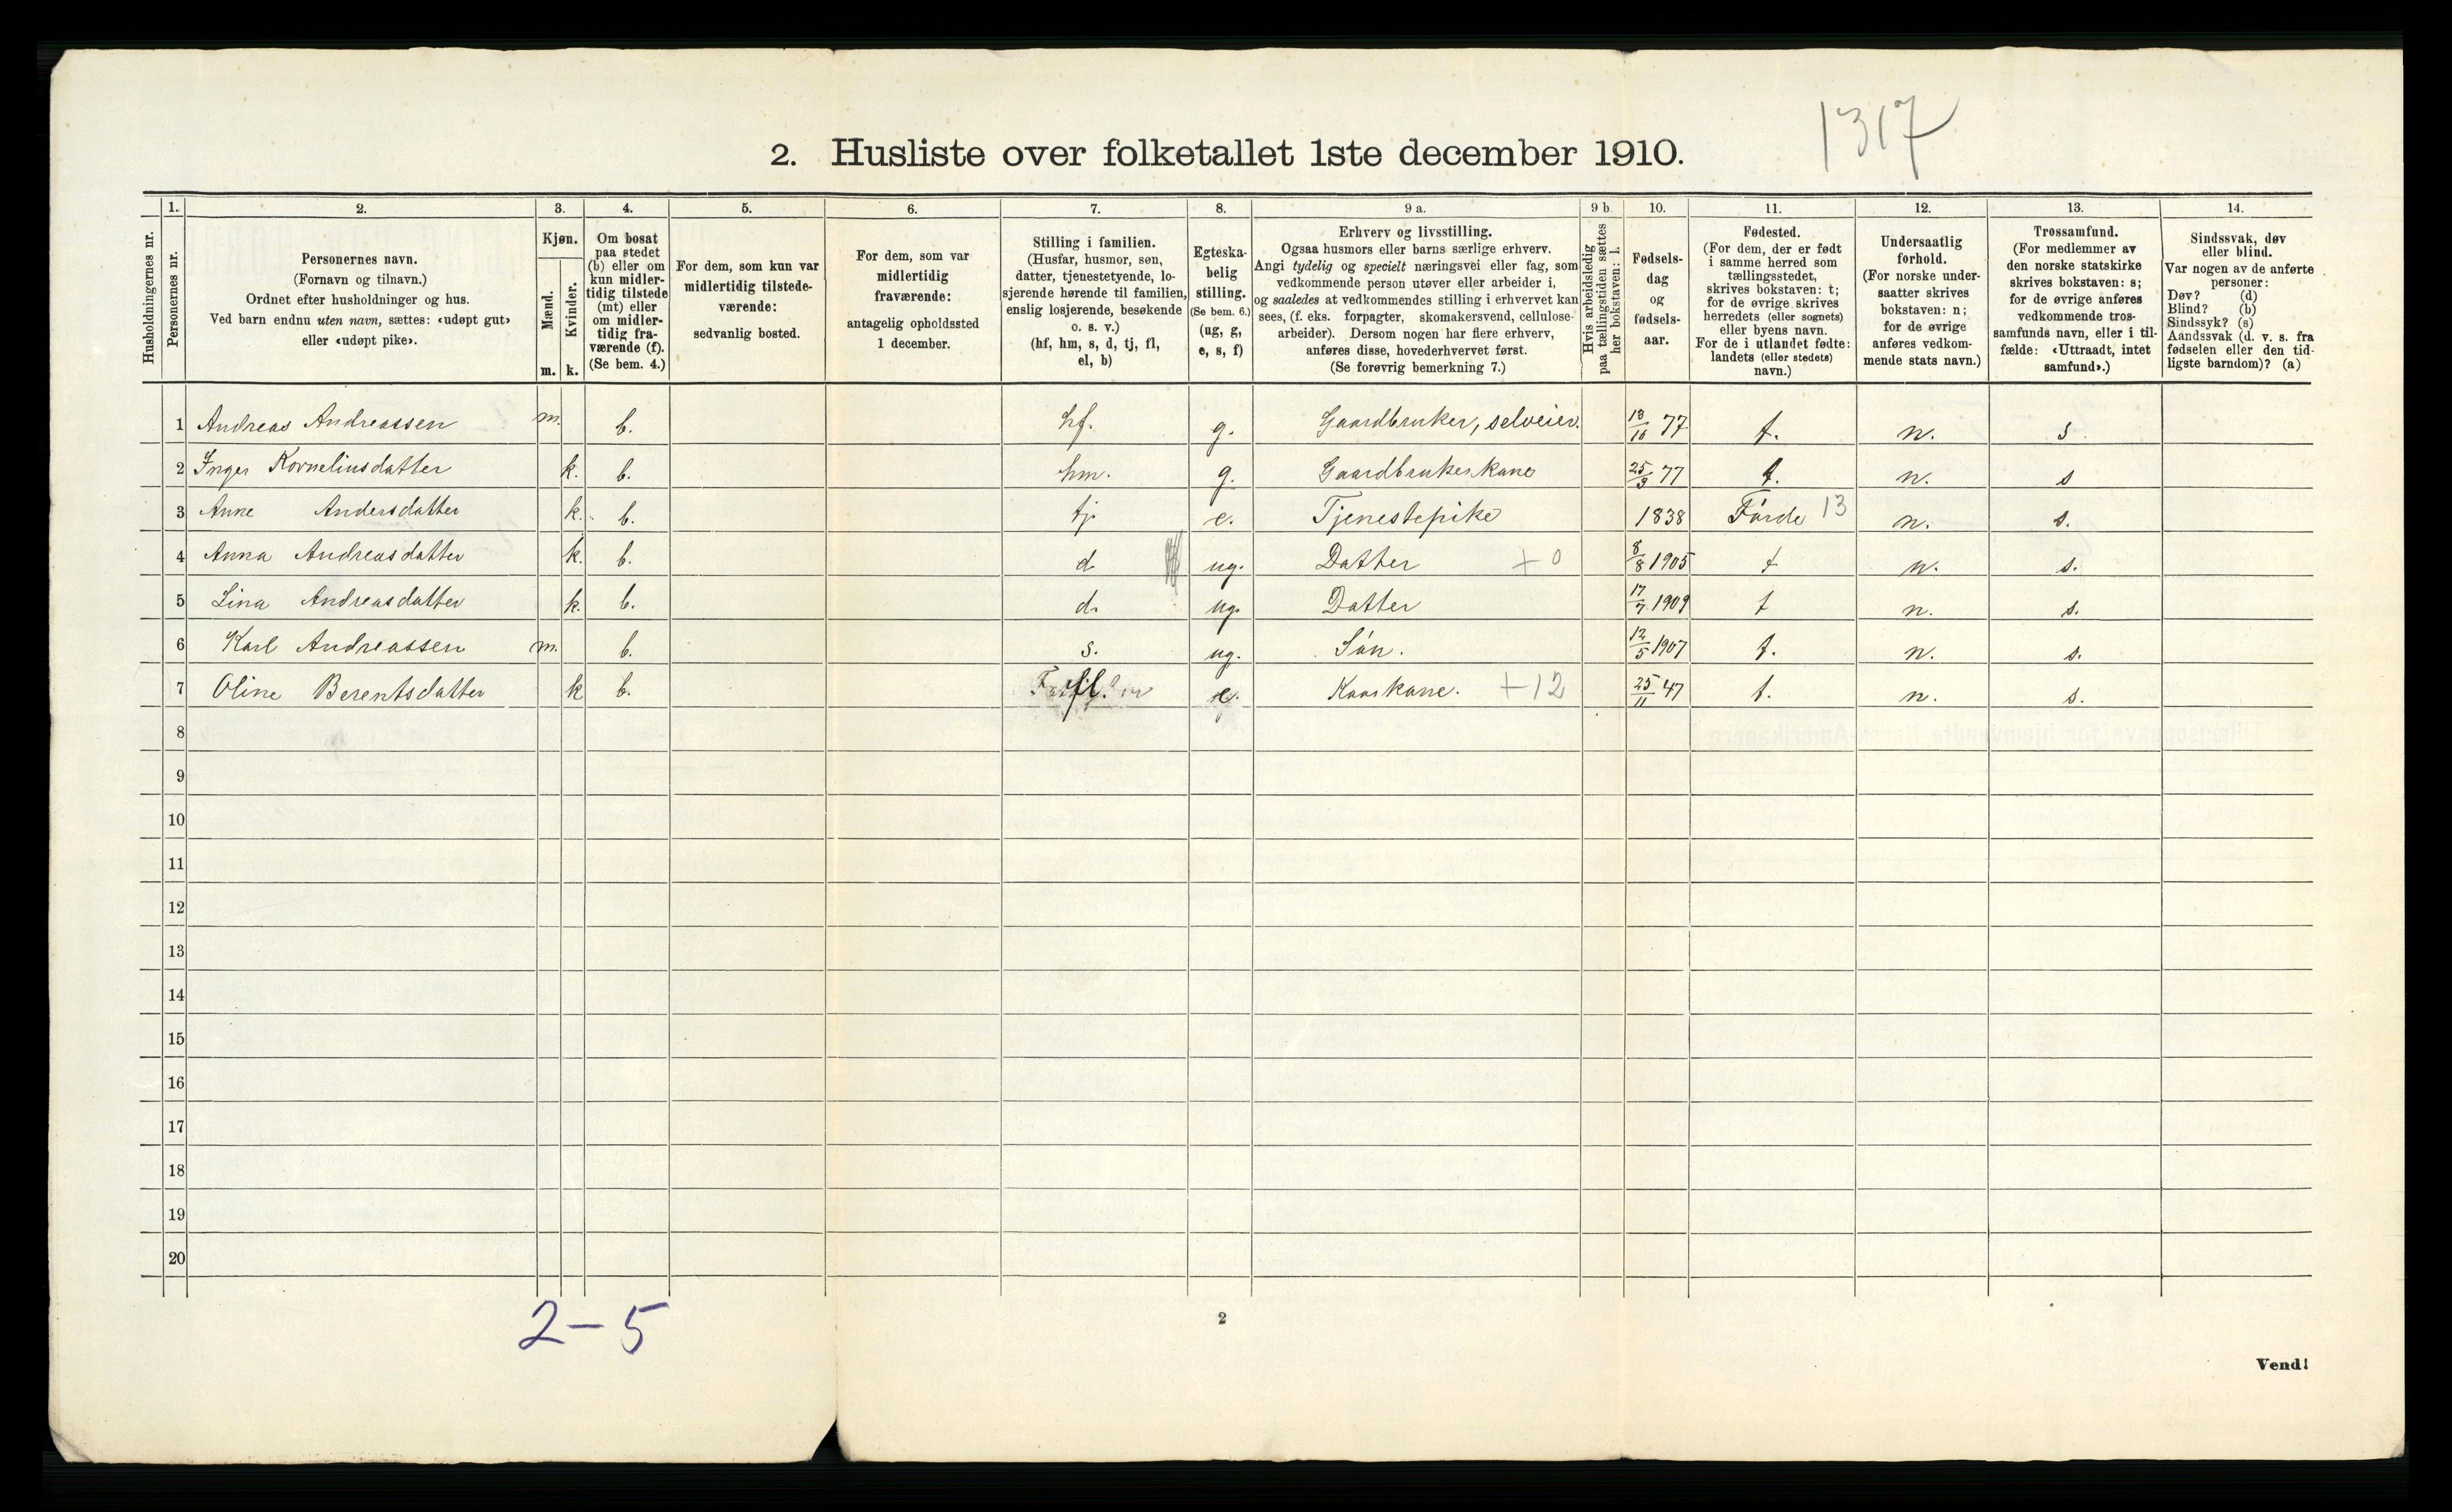 1317
2. Husliste over folketallet 1ste december 1910.
Husholdningernes nr.
1. Personernes nr.
2. Personernes navn.
(Fornavn og tilnavn.)
Ordnet efter husholdninger og hus.
Ved barn endnu uten navn, sættes: «udøpt gut»
eller «udøpt pike».
3. Kjøn.
Mænd. Kvinder.
m. k.
4. Om bosat
paa stedet
(b) eller om
kun midler-
tidig tilstede
(mt) eller
om midler-
tidig fra-
værende (f).
(Se bem. 4.)
5. For dem, som kun var
midlertidig tilstede-
værende:
sedvanlig bosted.
6. For dem, som var
midlertidig
fraværende:
antagelig opholdssted
1 december.
7. Stilling i familien.
(Husfar, husmor, søn,
datter, tjenestetyende, lo-
sjerende hørende til familien,
enslig losjerende, besøkende
o. s. v.)
(hf, hm, s, d, tj, fl,
el, b)
8. Egteska-
belig
stilling.
(Se bem. 6.)
(ug, g,
e, s, f)
9 a. Erhverv og livsstilling.
Ogsaa husmors eller barns særlige erhverv.
Angi tydelig og specielt næringsvei eller fag, som
vedkommende person utøver eller arbeider i,
og saaledes at vedkommendes stilling i erhvervet kan
sees, (f. eks. forpagter, skomakersvend, cellulose-
arbeider). Dersom nogen har flere erhverv,
anføres disse, hovederhvervet først.
(Se forøvrig bemerkning 7.)
9 b. Hvis arbeidsledig
paa tællingstiden sættes
her bokstaven: l.
10. Fødsels-
dag
og
fødsels-
aar.
11. Fødested.
(For dem, der er født
i samme herred som
tællingsstedet,
skrives bokstaven: t;
for de øvrige skrives
herredets (eller sognets)
eller byens navn.
For de i utlandet fødte:
landets (eller stedets)
navn.)
12. Undersaatlig
forhold.
(For norske under-
saatter skrives
bokstaven: n;
for de øvrige
anføres vedkom-
mende stats navn.)
13. Trossamfund.
(For medlemmer av
den norske statskirke
skrives bokstaven: s;
for de øvrige anføres
vedkommende tros-
samfunds navn, eller i til-
fælde: «Uttraadt, intet
samfund».)
14. Sindssvak, døv
eller blind.
Var nogen av de anførte
personer:
Døv? (d)
Blind? (b)
Sindssyk? (s)
Aandssvak (d. v. s. fra
fødselen eller den tid-
ligste barndom)? (a)
1 Andreas Andreassen m. b. hf. g. Gaardbruker, selveier. 13/10 77 t. n. s
2 Inger Kornelius datter k. b. hm. g. Gaardbrukerskane 25/9 77 t. n. s
3 Anne Andersdatter k. b. tj. e. Tjenestepike 1838 Førde 13 n. s.
4 Anna Andreasdatter k. b. d. ug. Datter + 0 8/8 1905 t n. s.
5 Lina Andreasdatter k. b. d. ug. Datter 17/7 1909 t n. s.
6 Karl Andreassen m. b. s. ug. Søn. 12/5 1907 t. n. s.
7 Oline Berentsdatter k b. fl. e. Kaarkane. +12 25/11 47 t. n. s.
8
9
10
11
12
13
14
15
16
17
18
19
20
2-5
2
Vend!